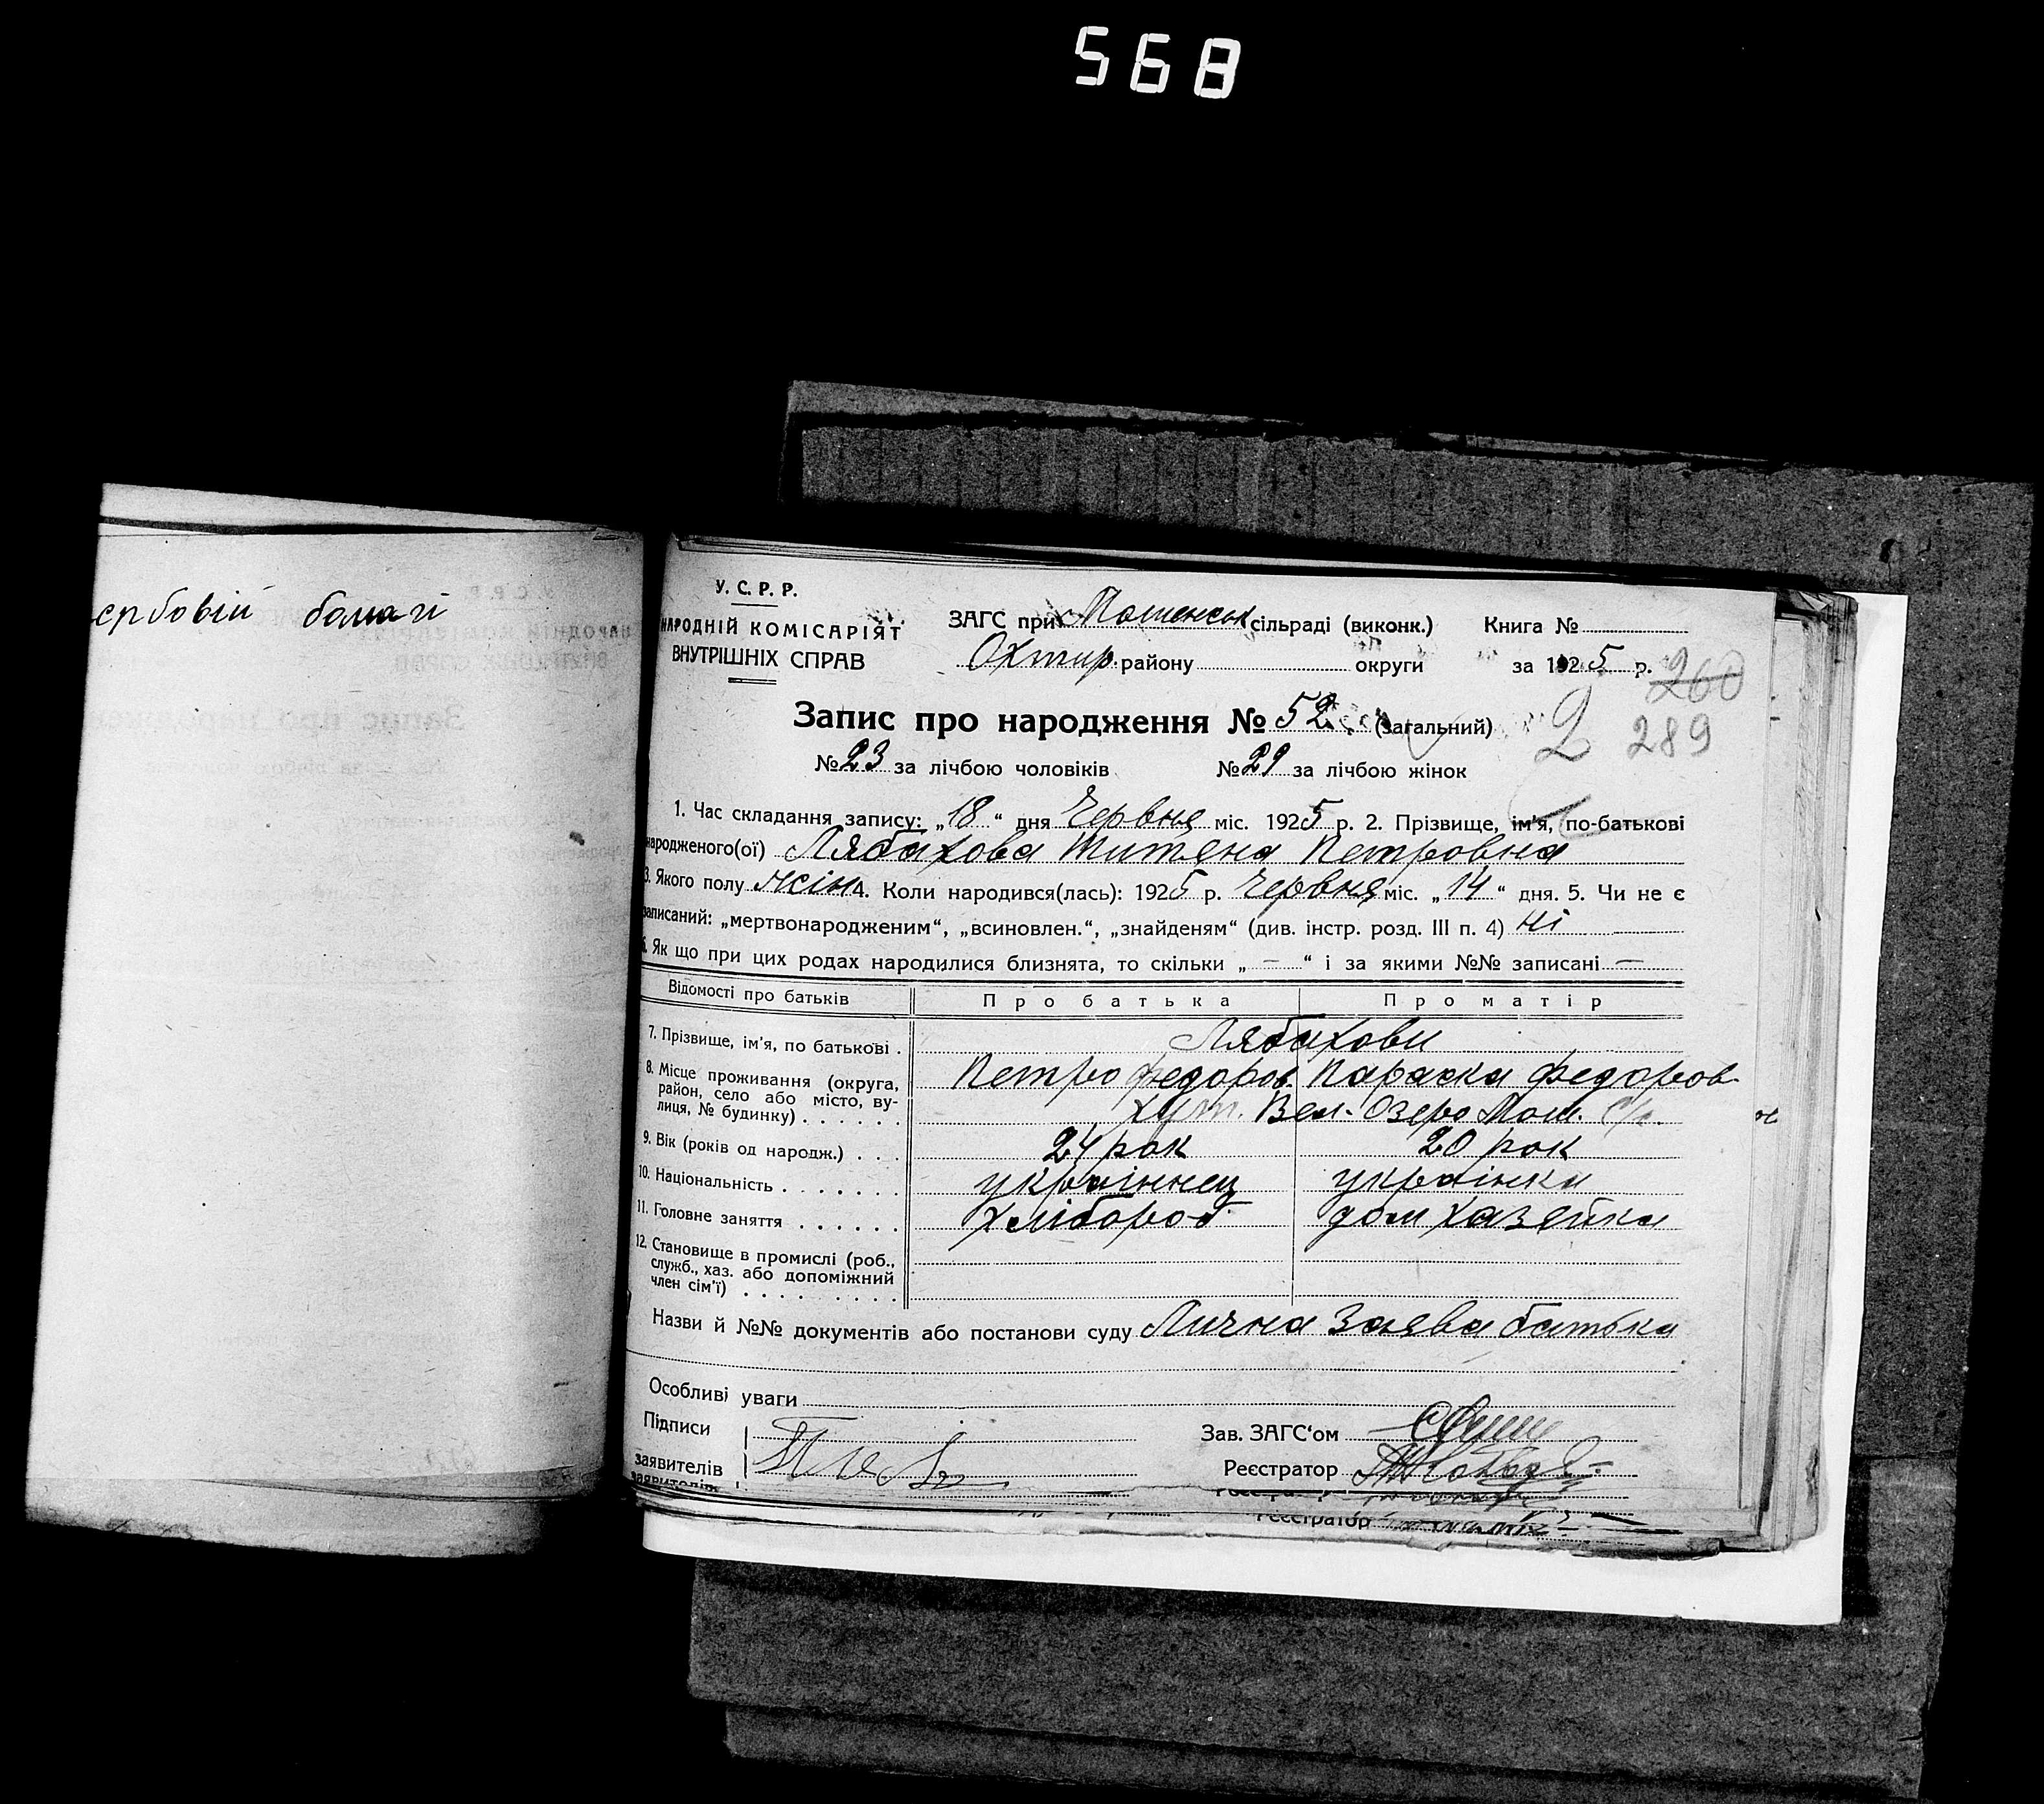 568
єрбовій бомагі
У. С. Р. Р.
НАРОДНІЙ КОМІСАРІЯТ
ВНУТРІШНІХ СПРАВ
ЗАГС при Мошенськ сільраді (виконк.) Книга №
Охтир. району округи за 1925 р.
260
Запис про народження № 52 (загальний)
2 289
№ 23 за лічбою чоловіків № 29 за лічбою жінок
1. Час складання запису: „18“ дня Червня міс. 1925 р. 2. Прізвище, ім'я, по-батькові
народженого(ої) Лябахова Титяна Петровна
3. Якого полу жін 4. Коли народився(лась): 1925 р. Червня міс. „14“ дня. 5. Чи не є
записаний: „мертвонародженим“, „всиновлен.“, „знайденям“ (див. інстр. розд. III п. 4) Ні
6. Як що при цих родах народилися близнята, то скільки „ — “ і за якими №№ записані —
Відомості про батьків Про батька Про матір
7. Прізвище, ім'я, по батькові . Лябахови
Петро Федоров. Параска Федоров.
8. Місце проживання (округа,
район, село або місто, ву-
лиця, № будинку) . . . . . . Хут. Вел. Озеро Мош. С/р.
9. Вік (років од народж.) . . . 24 рок 20 рок
10. Національність . . . . . . . українец українка
11. Головне заняття . . . . . . хлібороб дом хазейка
12. Становище в промислі (роб.,
служб., хаз. або допоміжний
член сім'ї) . . . . . . . .
Назви й №№ документів або постанови суду Лична Заява батька
Особливі уваги
Підписи
Зав. ЗАГС'ом
заявителів
Реєстратор
заявителів
Реєстратор